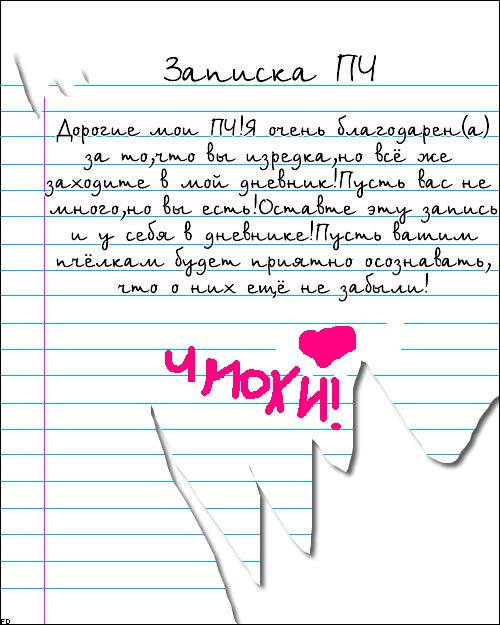 Записка ПЧ
Дорогие мои ПЧ!Я очень благодарен(а)
за то,что вы изредка,но всё же
заходите в мой дневник!Пусть вас не
много,но вы есть!Оставте эту запись
и у себя в дневнике!Пусть вашим
пчёлкам будет приятно осознавать,
что о них ещё не забыли!
чмохи!
FD